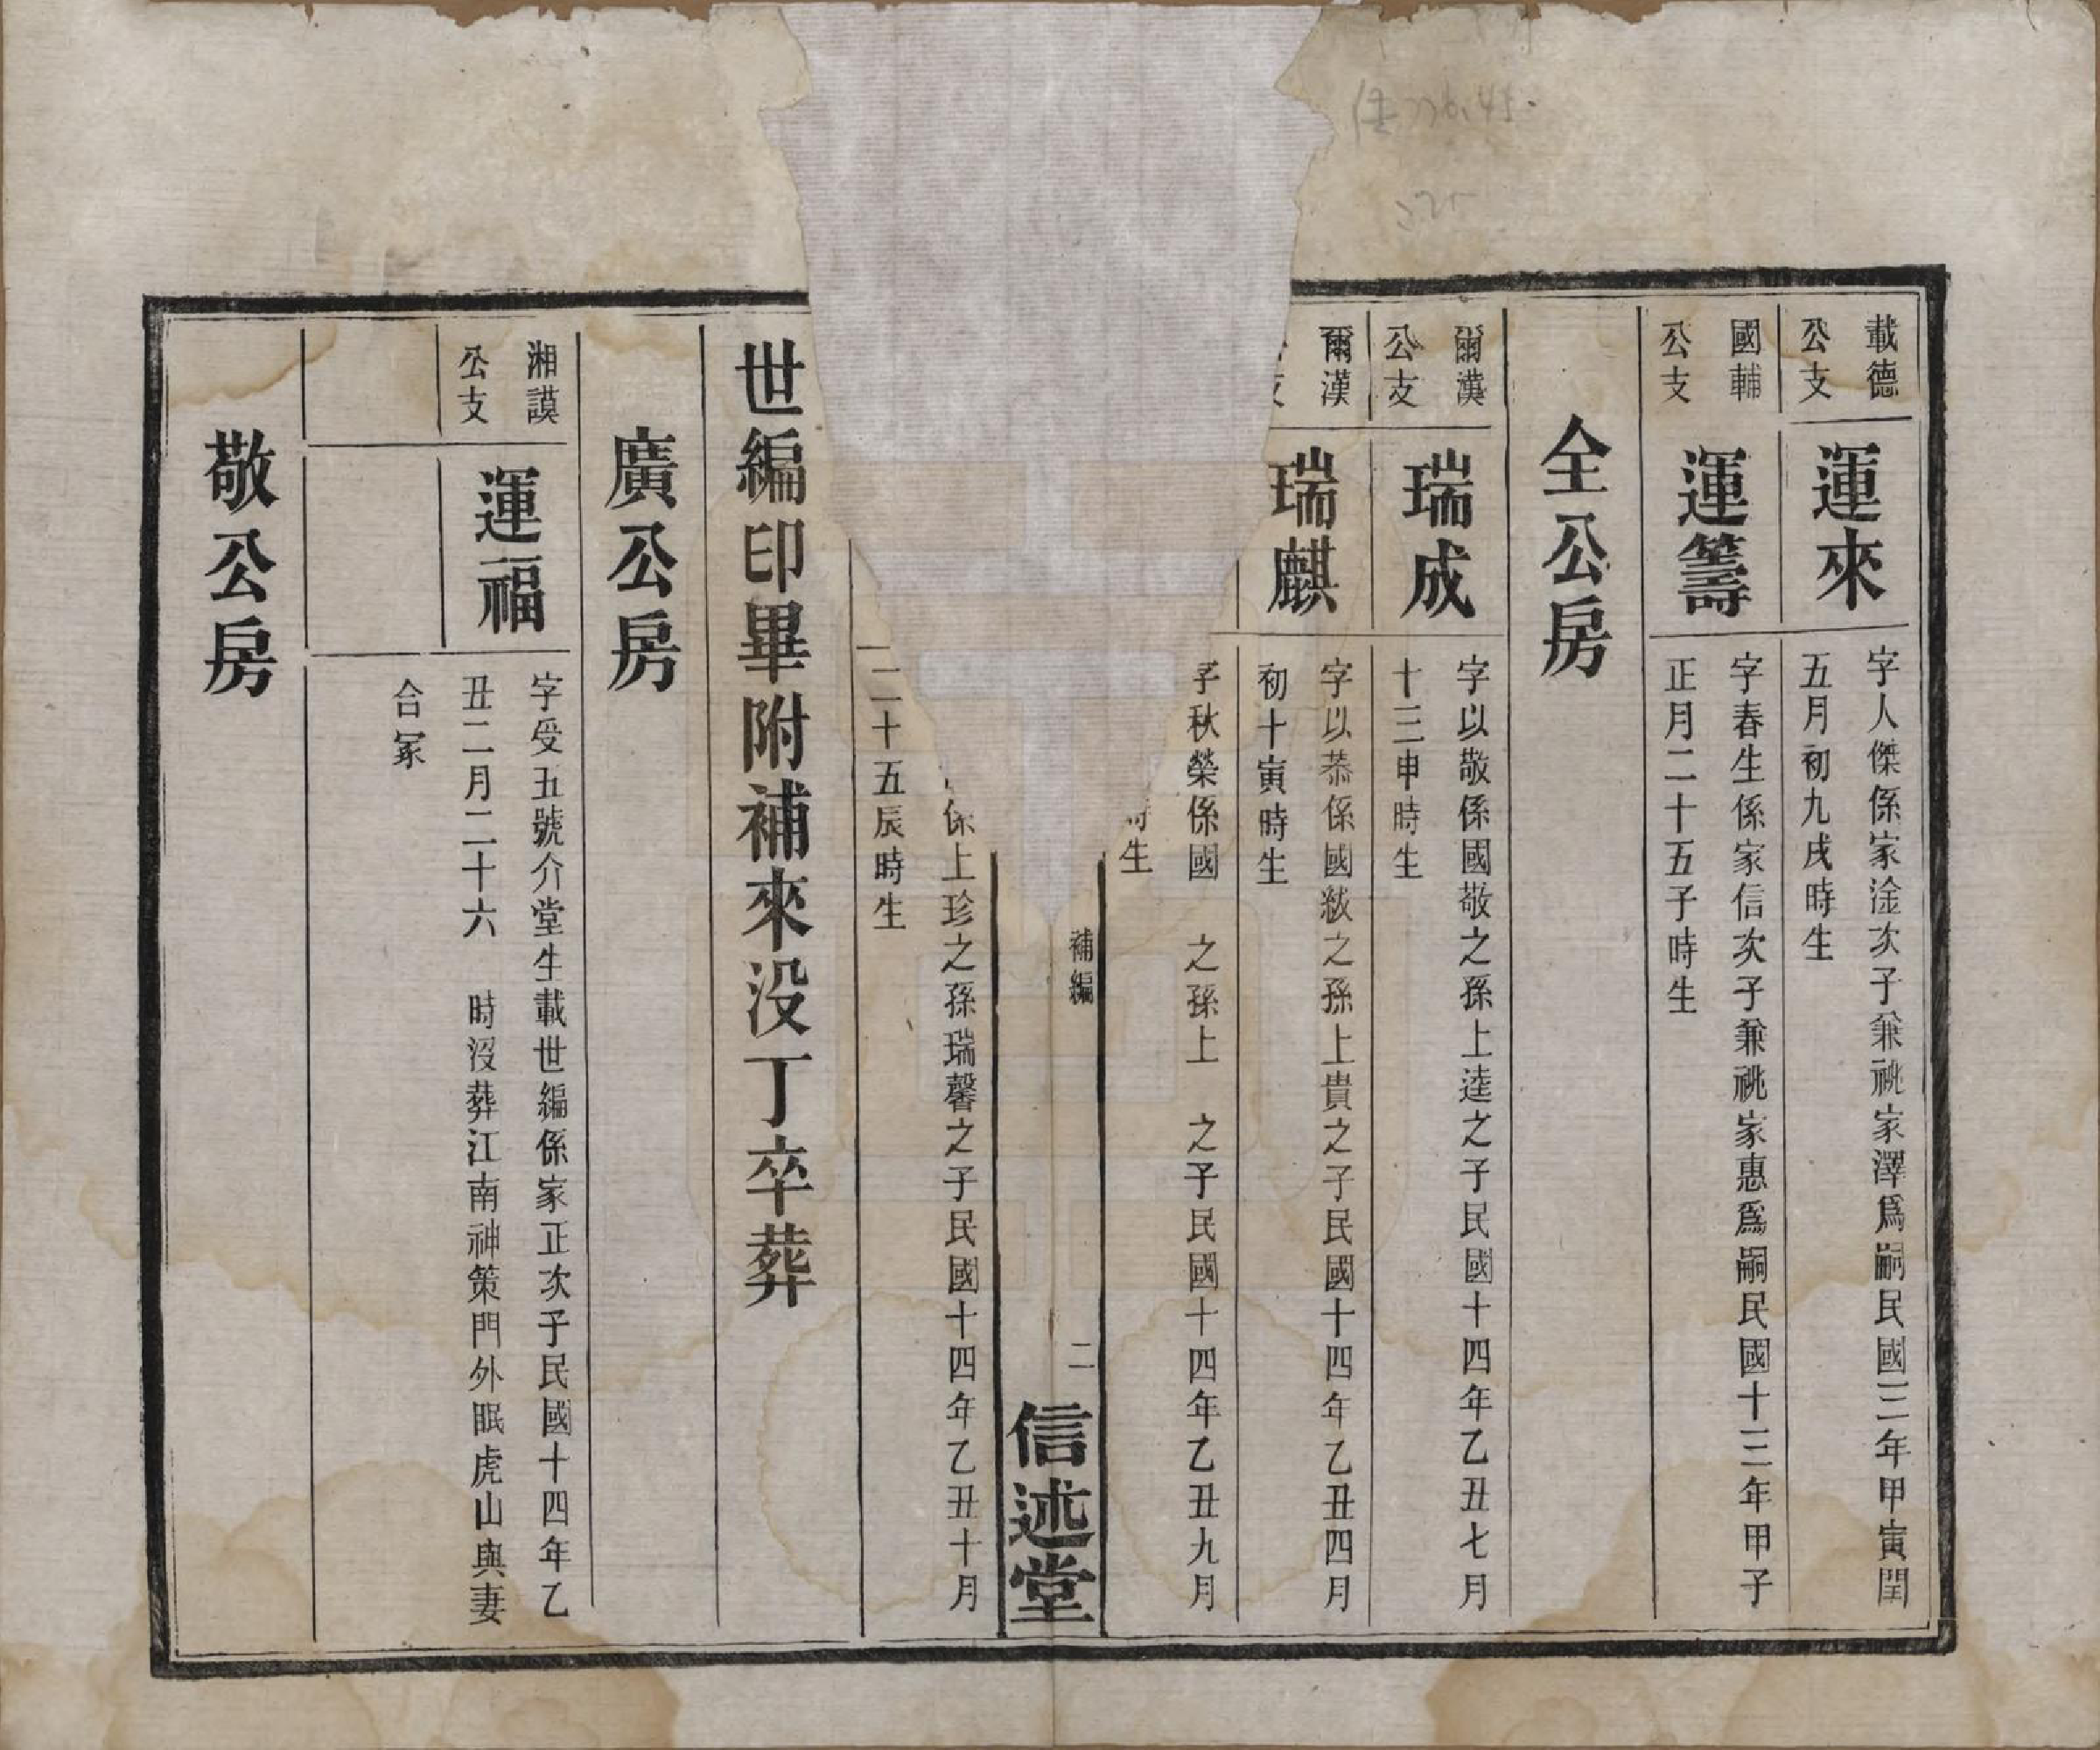 載德
公支
運來
字人傑係家淦次子兼祧家澤爲嗣民國三年甲寅閏
五月初九戌時生
國輔
公支
運籌
字春生係家信次子兼祧家惠爲嗣民國十三年甲子
正月二十五子時生
全公房
爾漢
公支
瑞成
字以敬係國敬之孫上逵之子民國十四年乙丑七月
十三申時生
爾漢
瑞麒
字以恭係國紱之孫上貴之子民國十四年乙丑四月
初十寅時生
子秋榮係國 之孫上 之子民國十四年乙丑九月
時生
補編
二
信述堂
係上珍之孫瑞馨之子民國十四年乙丑十月
二十五辰時生
世編印畢附補來没丁卒葬
廣公房
湘謨
公支
運福
字受五號介堂生載世編係家正次子民國十四年乙
丑二月二十六 時没葬江南神策門外眠虎山與妻
合冢
敬公房